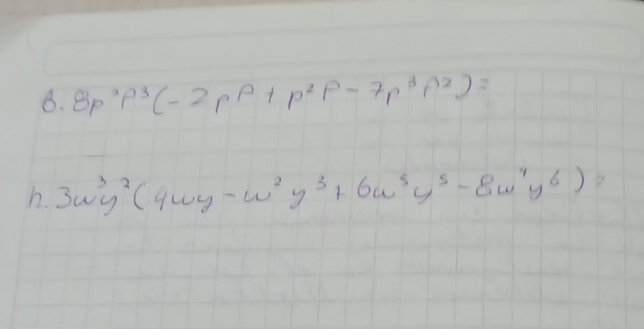 6. 8p²p³(-2pp + p²p - 7p³p²) =
h. 3w³y²(4wy - w²y³ + 6w⁵y⁵ - 8w⁴y⁶) =